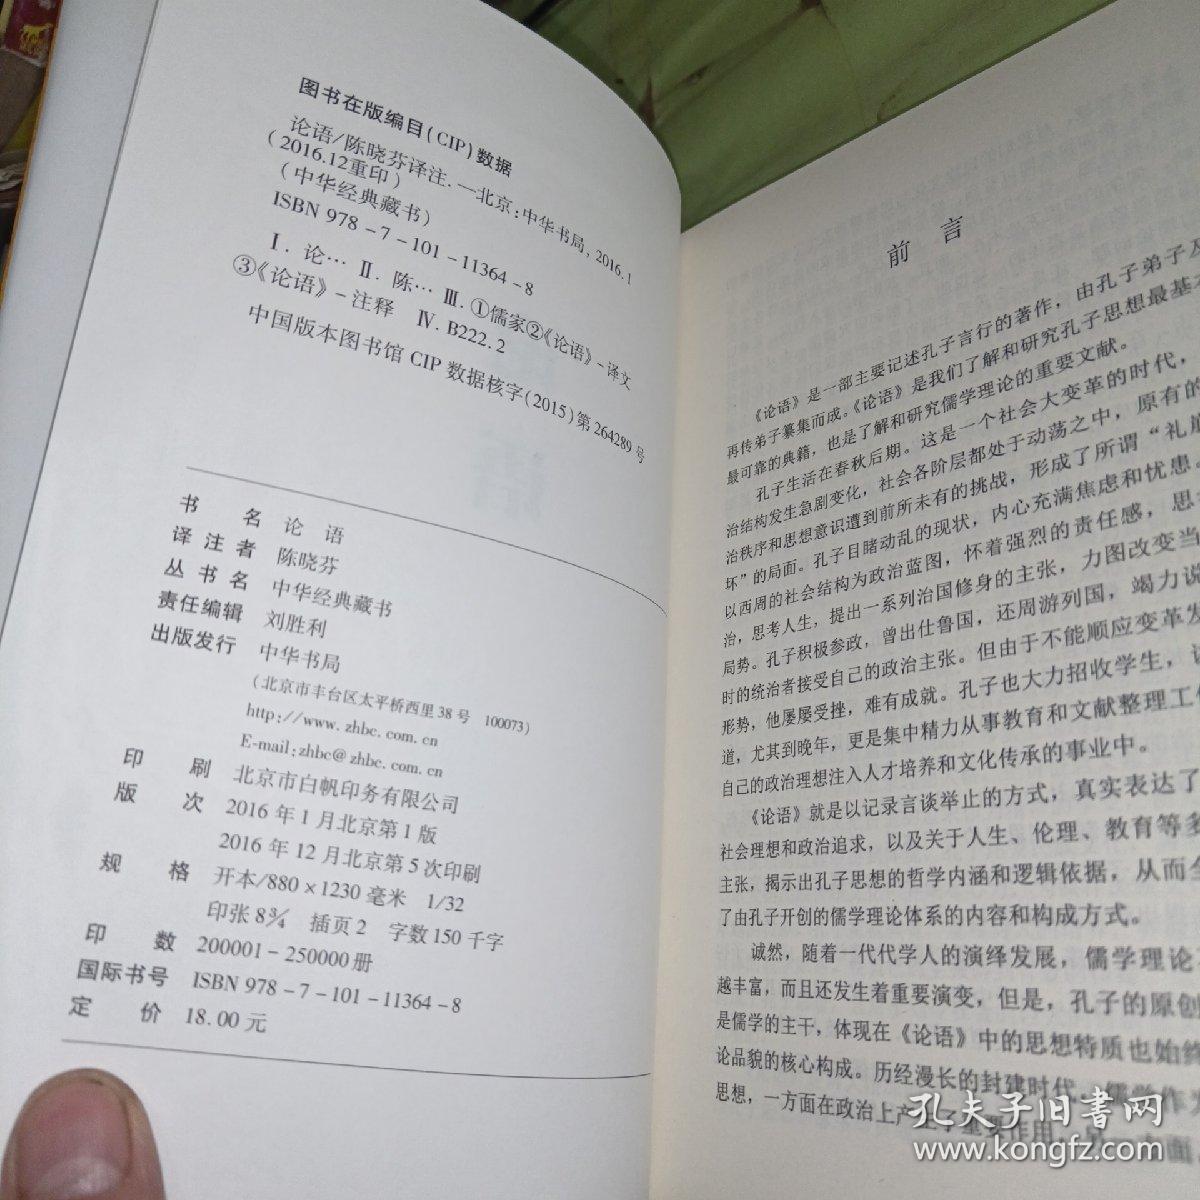 图书在版编目(CIP)数据
论语/陈晓芬译注.—北京:中华书局,2016.1
(2016.12重印)
(中华经典藏书)
ISBN 978-7-101-11364-8
Ⅰ.论… Ⅱ.陈… Ⅲ.①儒家②《论语》-译文
③《论语》-注释 Ⅳ.B222.2
中国版本图书馆CIP数据核字(2015)第264289号
书名 论语
译注者 陈晓芬
丛书名 中华经典藏书
责任编辑 刘胜利
出版发行 中华书局
(北京市丰台区太平桥西里38号 100073)
http://www.zhbc.com.cn
E-mail:zhbc@zhbc.com.cn
印刷 北京市白帆印务有限公司
版次 2016年1月北京第1版
2016年12月北京第5次印刷
规格 开本/880×1230毫米 1/32
印张8¾ 插页2 字数150千字
印数 200001-250000册
国际书号 ISBN 978-7-101-11364-8
定价 18.00元
前言
《论语》是一部主要记述孔子言行的著作，由孔子弟子及
再传弟子纂集而成。《论语》是我们了解和研究孔子思想最基本
最可靠的典籍，也是了解和研究儒学理论的重要文献。
孔子生活在春秋后期。这是一个社会大变革的时代，
治结构发生急剧变化，社会各阶层都处于动荡之中，原有的
治秩序和思想意识遭到前所未有的挑战，形成了所谓“礼崩
坏”的局面。孔子目睹动乱的现状，内心充满焦虑和忧患。
以西周的社会结构为政治蓝图，怀着强烈的责任感，思
治，思考人生，提出一系列治国修身的主张，力图改变当
局势。孔子积极参政，曾出仕鲁国，还周游列国，竭力说
时的统治者接受自己的政治主张。但由于不能顺应变革发
形势，他屡屡受挫，难有成就。孔子也大力招收学生，讲
道，尤其到晚年，更是集中精力从事教育和文献整理工作
自己的政治理想注入人才培养和文化传承的事业中。
《论语》就是以记录言谈举止的方式，真实表达了
社会理想和政治追求，以及关于人生、伦理、教育等多
主张，揭示出孔子思想的哲学内涵和逻辑依据，从而全
了由孔子开创的儒学理论体系的内容和构成方式。
诚然，随着一代代学人的演绎发展，儒学理论
越丰富，而且还发生着重要演变，但是，孔子的原创
是儒学的主干，体现在《论语》中的思想特质也始终
论品貌的核心构成。历经漫长的封建时代，儒学作为
思想，一方面在政治上产生了重要作用，
孔夫子旧书网
www.kongfz.com